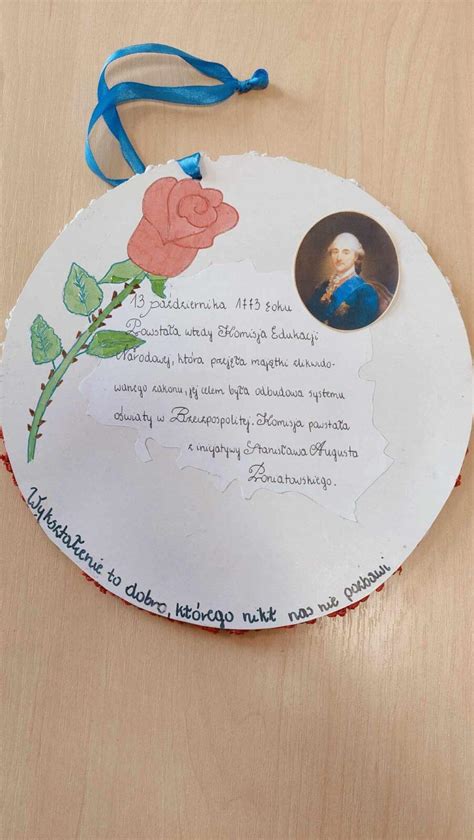 13 października 1773 roku
Powstała wtedy Komisja Edukacji
Narodowej, która przejęła majątki zlikwido-
wanego zakonu, jej celem była odbudowa systemu
oświaty w Rzeczpospolitej. Komisja powstała
z inicjatywy Stanisława Augusta
Poniatowskiego.
Wykształcenie to dobro, którego nikt nas nie pozbawi